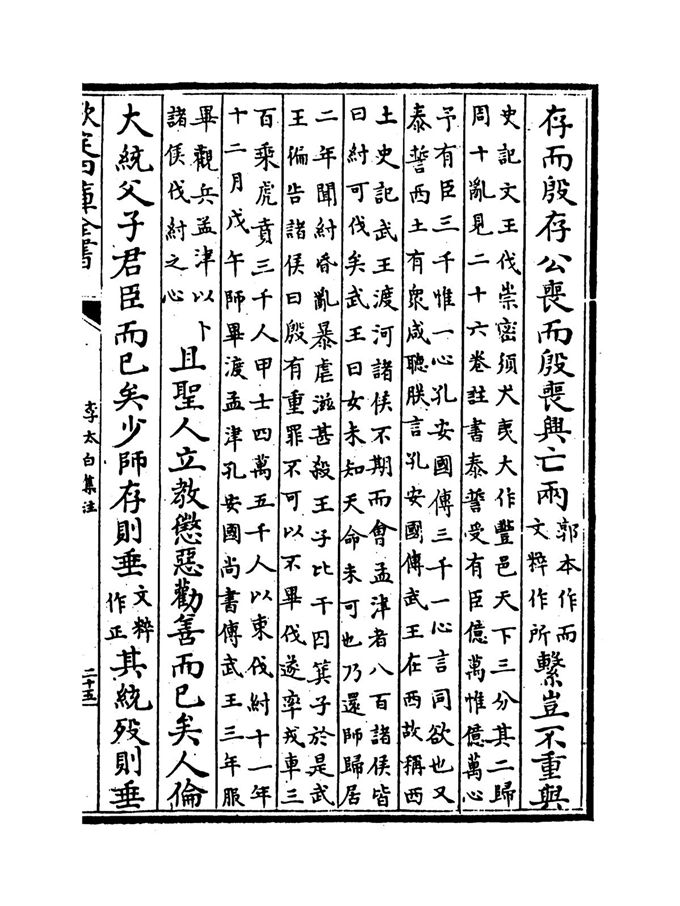 存而殷存公喪而殷喪興亡兩郭本作而文粹作所繫豈不重與
史記文王伐崇密須犬夷大作豐邑天下三分其二歸
周十亂見二十六卷註書泰誓受有臣億萬惟億萬心
予有臣三千惟一心孔安國傳三千一心言同欲也又
泰誓西土有衆咸聽朕言孔安國傳武王在西故稱西
土史記武王渡河諸侯不期而會孟津者八百諸侯皆
曰紂可伐矣武王曰女未知天命未可也乃還師歸居
二年聞紂昏亂暴虐滋甚殺王子比干囚箕子於是武
王徧告諸侯曰殷有重罪不可以不畢伐遂率戎車三
百乘虎賁三千人甲士四萬五千人以東伐紂十一年
十二月戊午師畢渡孟津孔安國尚書傳武王三年服
畢觀兵孟津以卜諸侯伐紂之心且聖人立教懲惡勸善而已矣人倫
大統父子君臣而已矣少師存則垂文粹作正其統殁則垂
欽定四庫全書
李太白集注
二十五